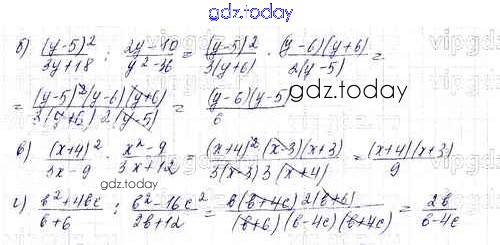 gdz.today
б) (y-5)²/3y+18 : 2y-10/y²-36 = (y-5)²/3(y+6) · (y-6)(y+6)/2(y-5) =
= (y-5)²(y-6)(y+6)/3(y+6) 2(y-5) = (y-6)(y-5)/6
gdz.today
в) (x+4)²/3x-9 · x²-9/3x+12 = (x+4)²(x-3)(x+3)/3(x-3) 3(x+4) = (x+4)(x+3)/9
г) b²+4bc/b+6 : b²-16c²/2b+12 = b(b+4c) 2(b+6)/(b+6)(b-4c)(b+4c) = 2b/b-4c